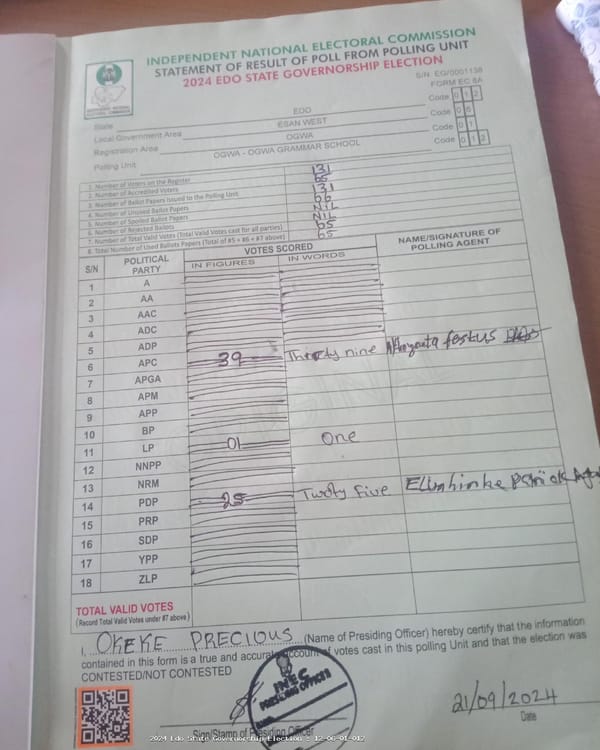 INDEPENDENT NATIONAL ELECTORAL COMMISSION
STATEMENT OF RESULT OF POLL FROM POLLING UNIT
2024 EDO STATE GOVERNORSHIP ELECTION
S/N: EG/0001138
FORM EC 8A
State EDO Code 0 1 2
Local Government Area ESAN WEST Code 0 6
Registration Area OGWA Code 0 1
Polling Unit OGWA - OGWA GRAMMAR SCHOOL Code 0 1 2
1. Number of Voters on the Register 131
2. Number of Accredited Voters 65
3. Number of Ballot Papers Issued to the Polling Unit 131
4. Number of Unused Ballot Papers 66
5. Number of Spoiled Ballot Papers NIL
6. Number of Rejected Ballots NIL
7. Number of Total Valid Votes (Total Valid Votes cast for all parties) 65
8. Total Number of Used Ballots Papers (Total of #5 + #6 + #7 above) 65
S/N POLITICAL PARTY VOTES SCORED NAME/SIGNATURE OF POLLING AGENT
IN FIGURES IN WORDS
1 A
2 AA
3 AAC
4 ADC
5 ADP
6 APC 39 Thirty nine festus
7 APGA
8 APM
9 APP
10 BP
11 LP 01 One
12 NNPP
13 NRM
14 PDP 25 Twenty five
15 PRP
16 SDP
17 YPP
18 ZLP
TOTAL VALID VOTES
(Record Total Valid Votes under #7 above)
I, OKEKE PRECIOUS (Name of Presiding Officer) hereby certify that the information
contained in this form is a true and accurate account of votes cast in this polling Unit and that the election was
CONTESTED/NOT CONTESTED
INEC
PRESIDING OFFICER
21/09/2024
Sign/Stamp of Presiding Officer
Date
2024 Edo State Governorship Election : 12-06-01-012